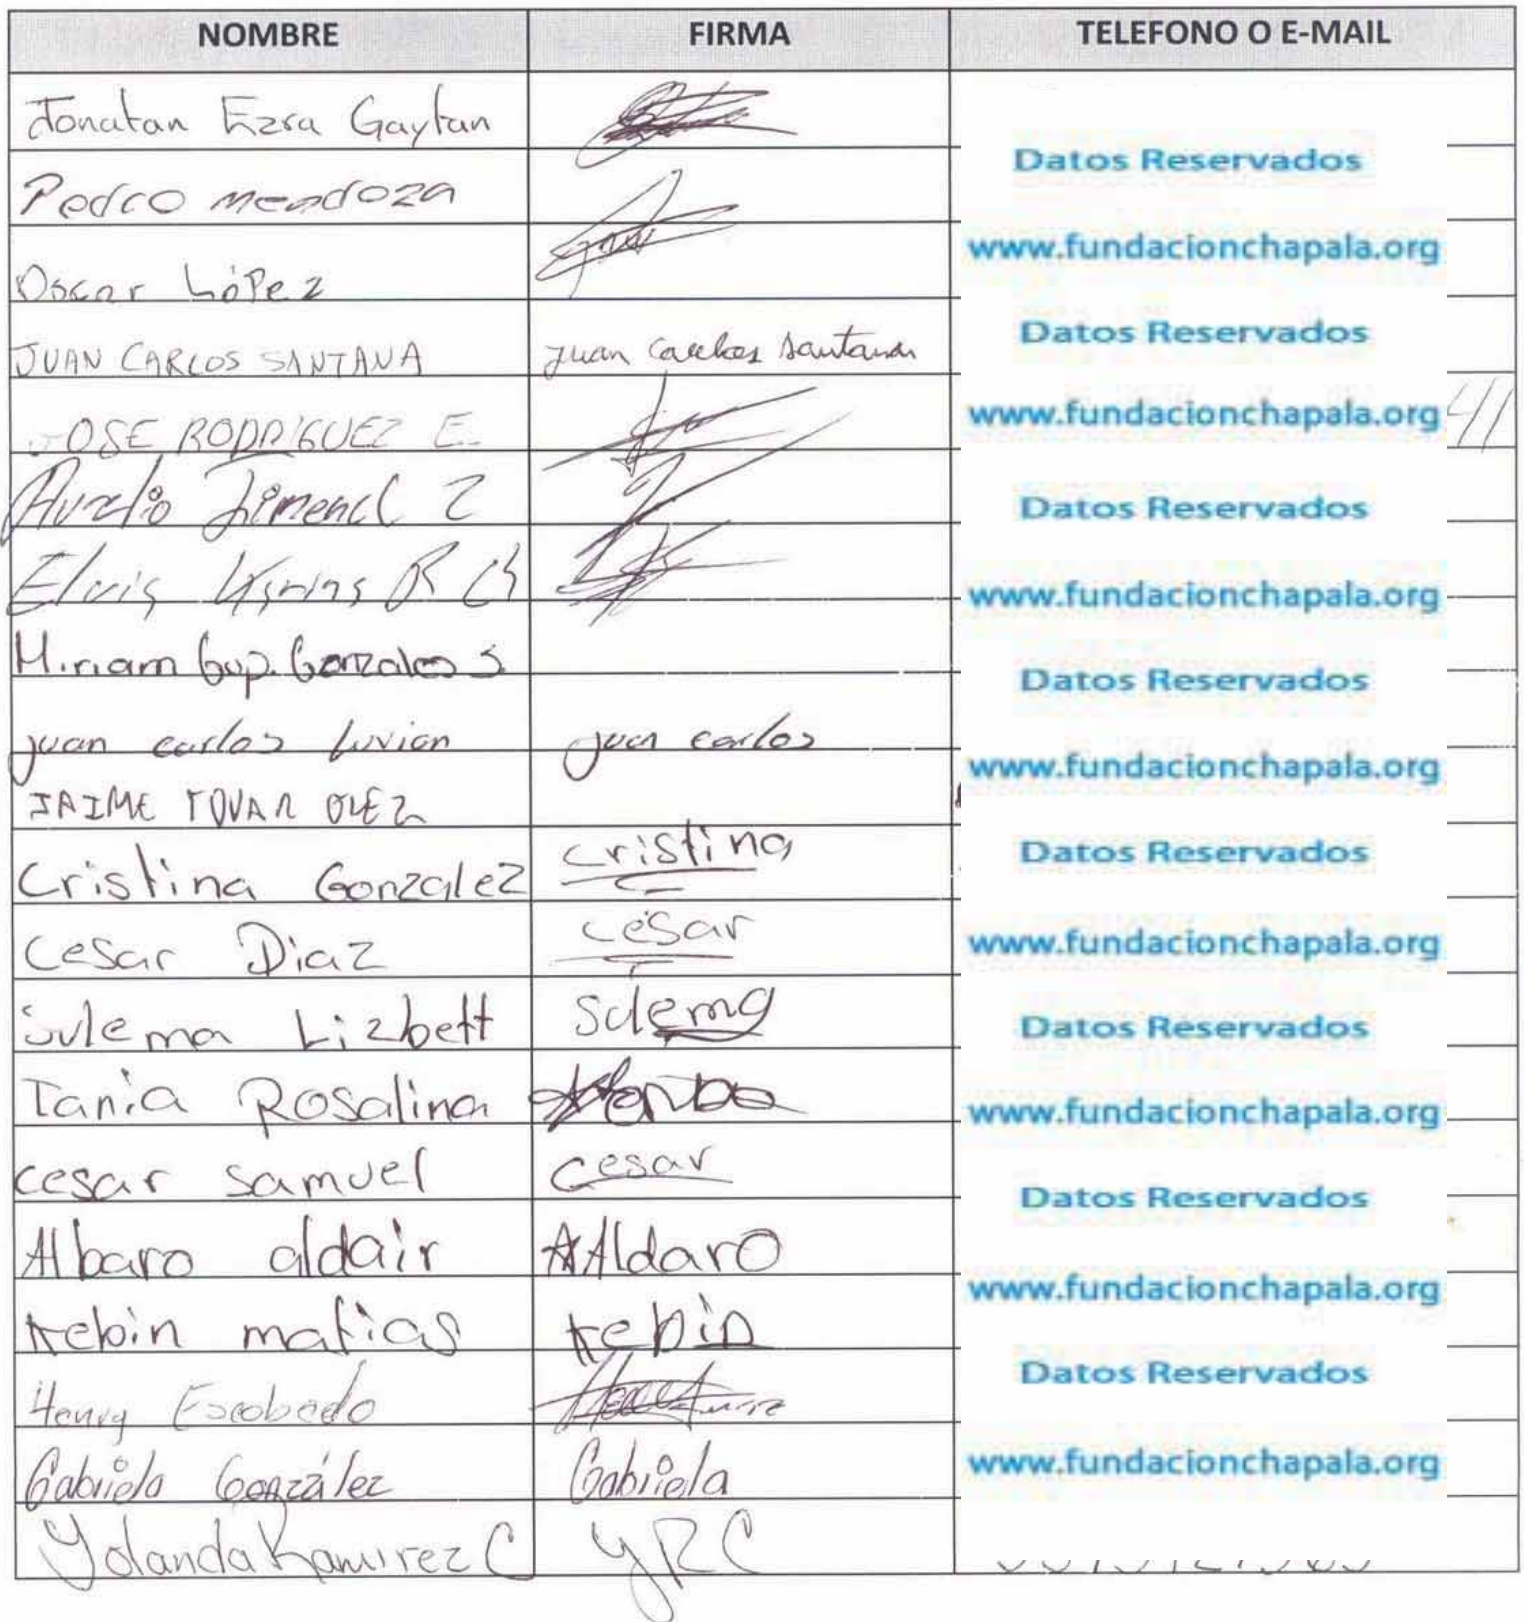 NOMBRE FIRMA TELEFONO O E-MAIL
Jonatan Ezra Gaytan
Datos Reservados
Pedro Mendoza
www.fundacionchapala.org
Oscar López
Datos Reservados
JUAN CARLOS SANTANA Juan Carlos Santana
www.fundacionchapala.org 41
JOSE RODRIGUEZ E.
Aurelio Jimenez Z
Datos Reservados
Elvis R Ch
www.fundacionchapala.org
Miriam Gup. Gonzales S
Datos Reservados
juan carlos luvian juan carlos
www.fundacionchapala.org
JAIME TOVAR
Cristina Gonzalez cristina
Datos Reservados
Cesar Diaz cesar
www.fundacionchapala.org
Sulema Lizbett Sulema
Datos Reservados
Tania Rosalina
www.fundacionchapala.org
cesar samuel cesar
Datos Reservados
Albaro aldair AAldaro
www.fundacionchapala.org
Kebin matias kebin
Datos Reservados
Henry Escobedo
Gabriela González Gabriela
www.fundacionchapala.org
Yolanda Ramirez C YRC